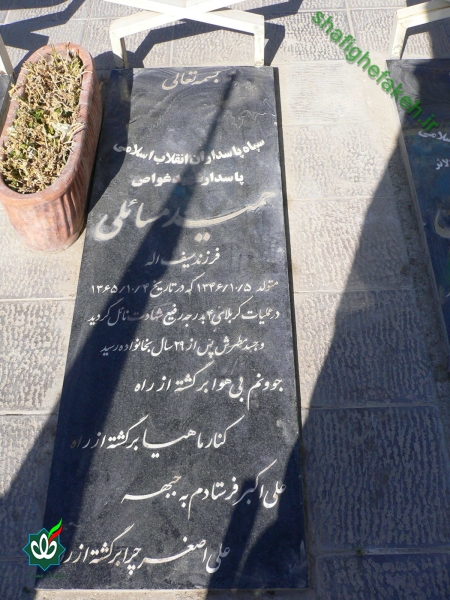 بسمه تعالی
سپاه پاسداران انقلاب اسلامی
پاسدار شهید غواص
حمید مسائلی
فرزند سیف اله
متولد ۱۳۴۶/۱۰/۵ که در تاریخ ۱۳۶۵/۱۰/۴
در عملیات کربلائی ۴ بدرجه رفیع شهادت نائل گردید
و جسد مطهرش پس از ۲۹ سال بخانواده رسید
جوونم بی هوا برگشته از راه
کنار ماهیا برگشته از راه
علی اکبر فرستادم به جبهه
علی اصغر چرا برگشته از ر
shafighefakeh.ir